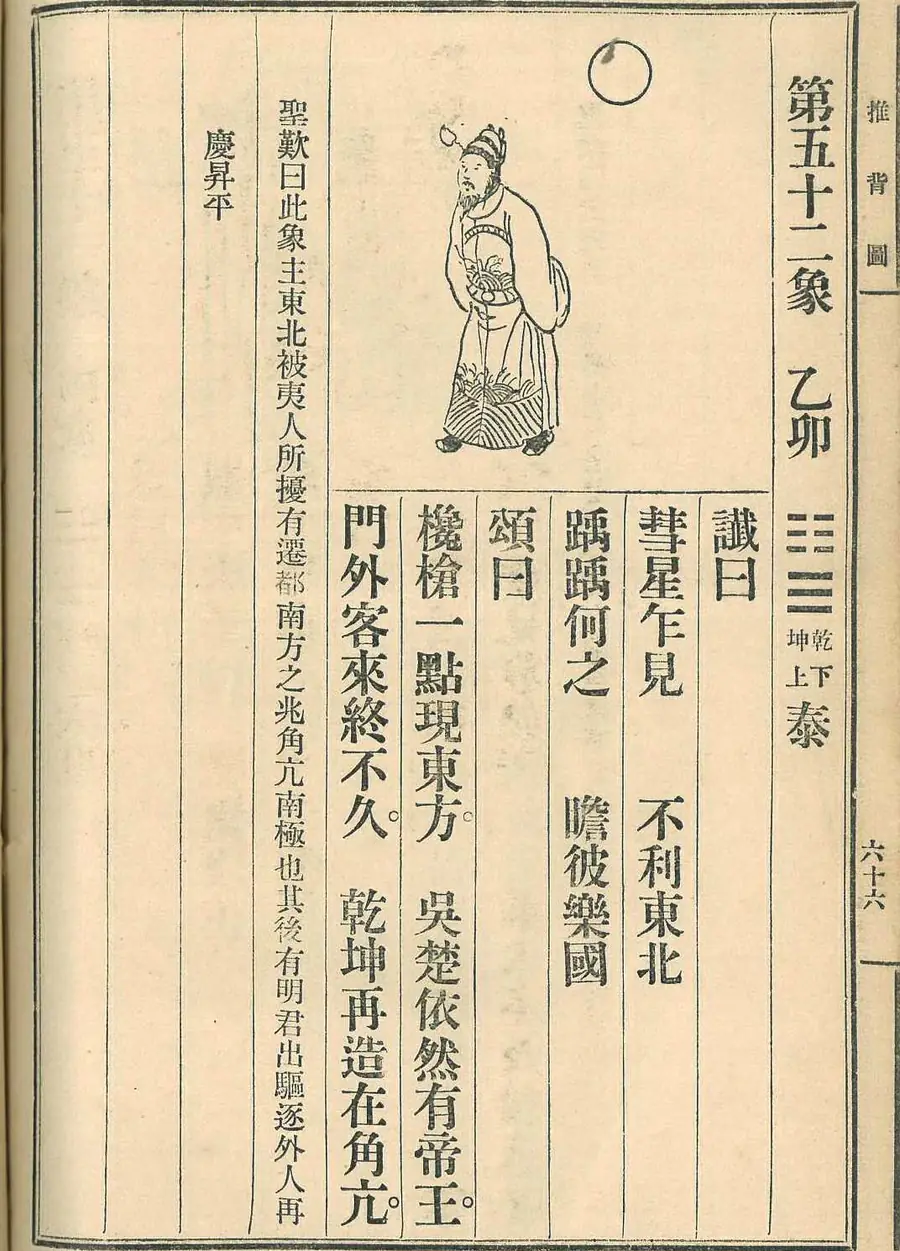 推背圖
六十六
第五十二象 乙卯 乾下坤上 泰
讖曰
彗星乍見 不利東北
踽踽何之 瞻彼樂國
頌曰
欃槍一點現東方。 吳楚依然有帝王。
門外客來終不久。 乾坤再造在角亢。
聖歎曰此象主東北被夷人所擾有遷都南方之兆角亢南極也其後有明君出驅逐外人再
慶昇平